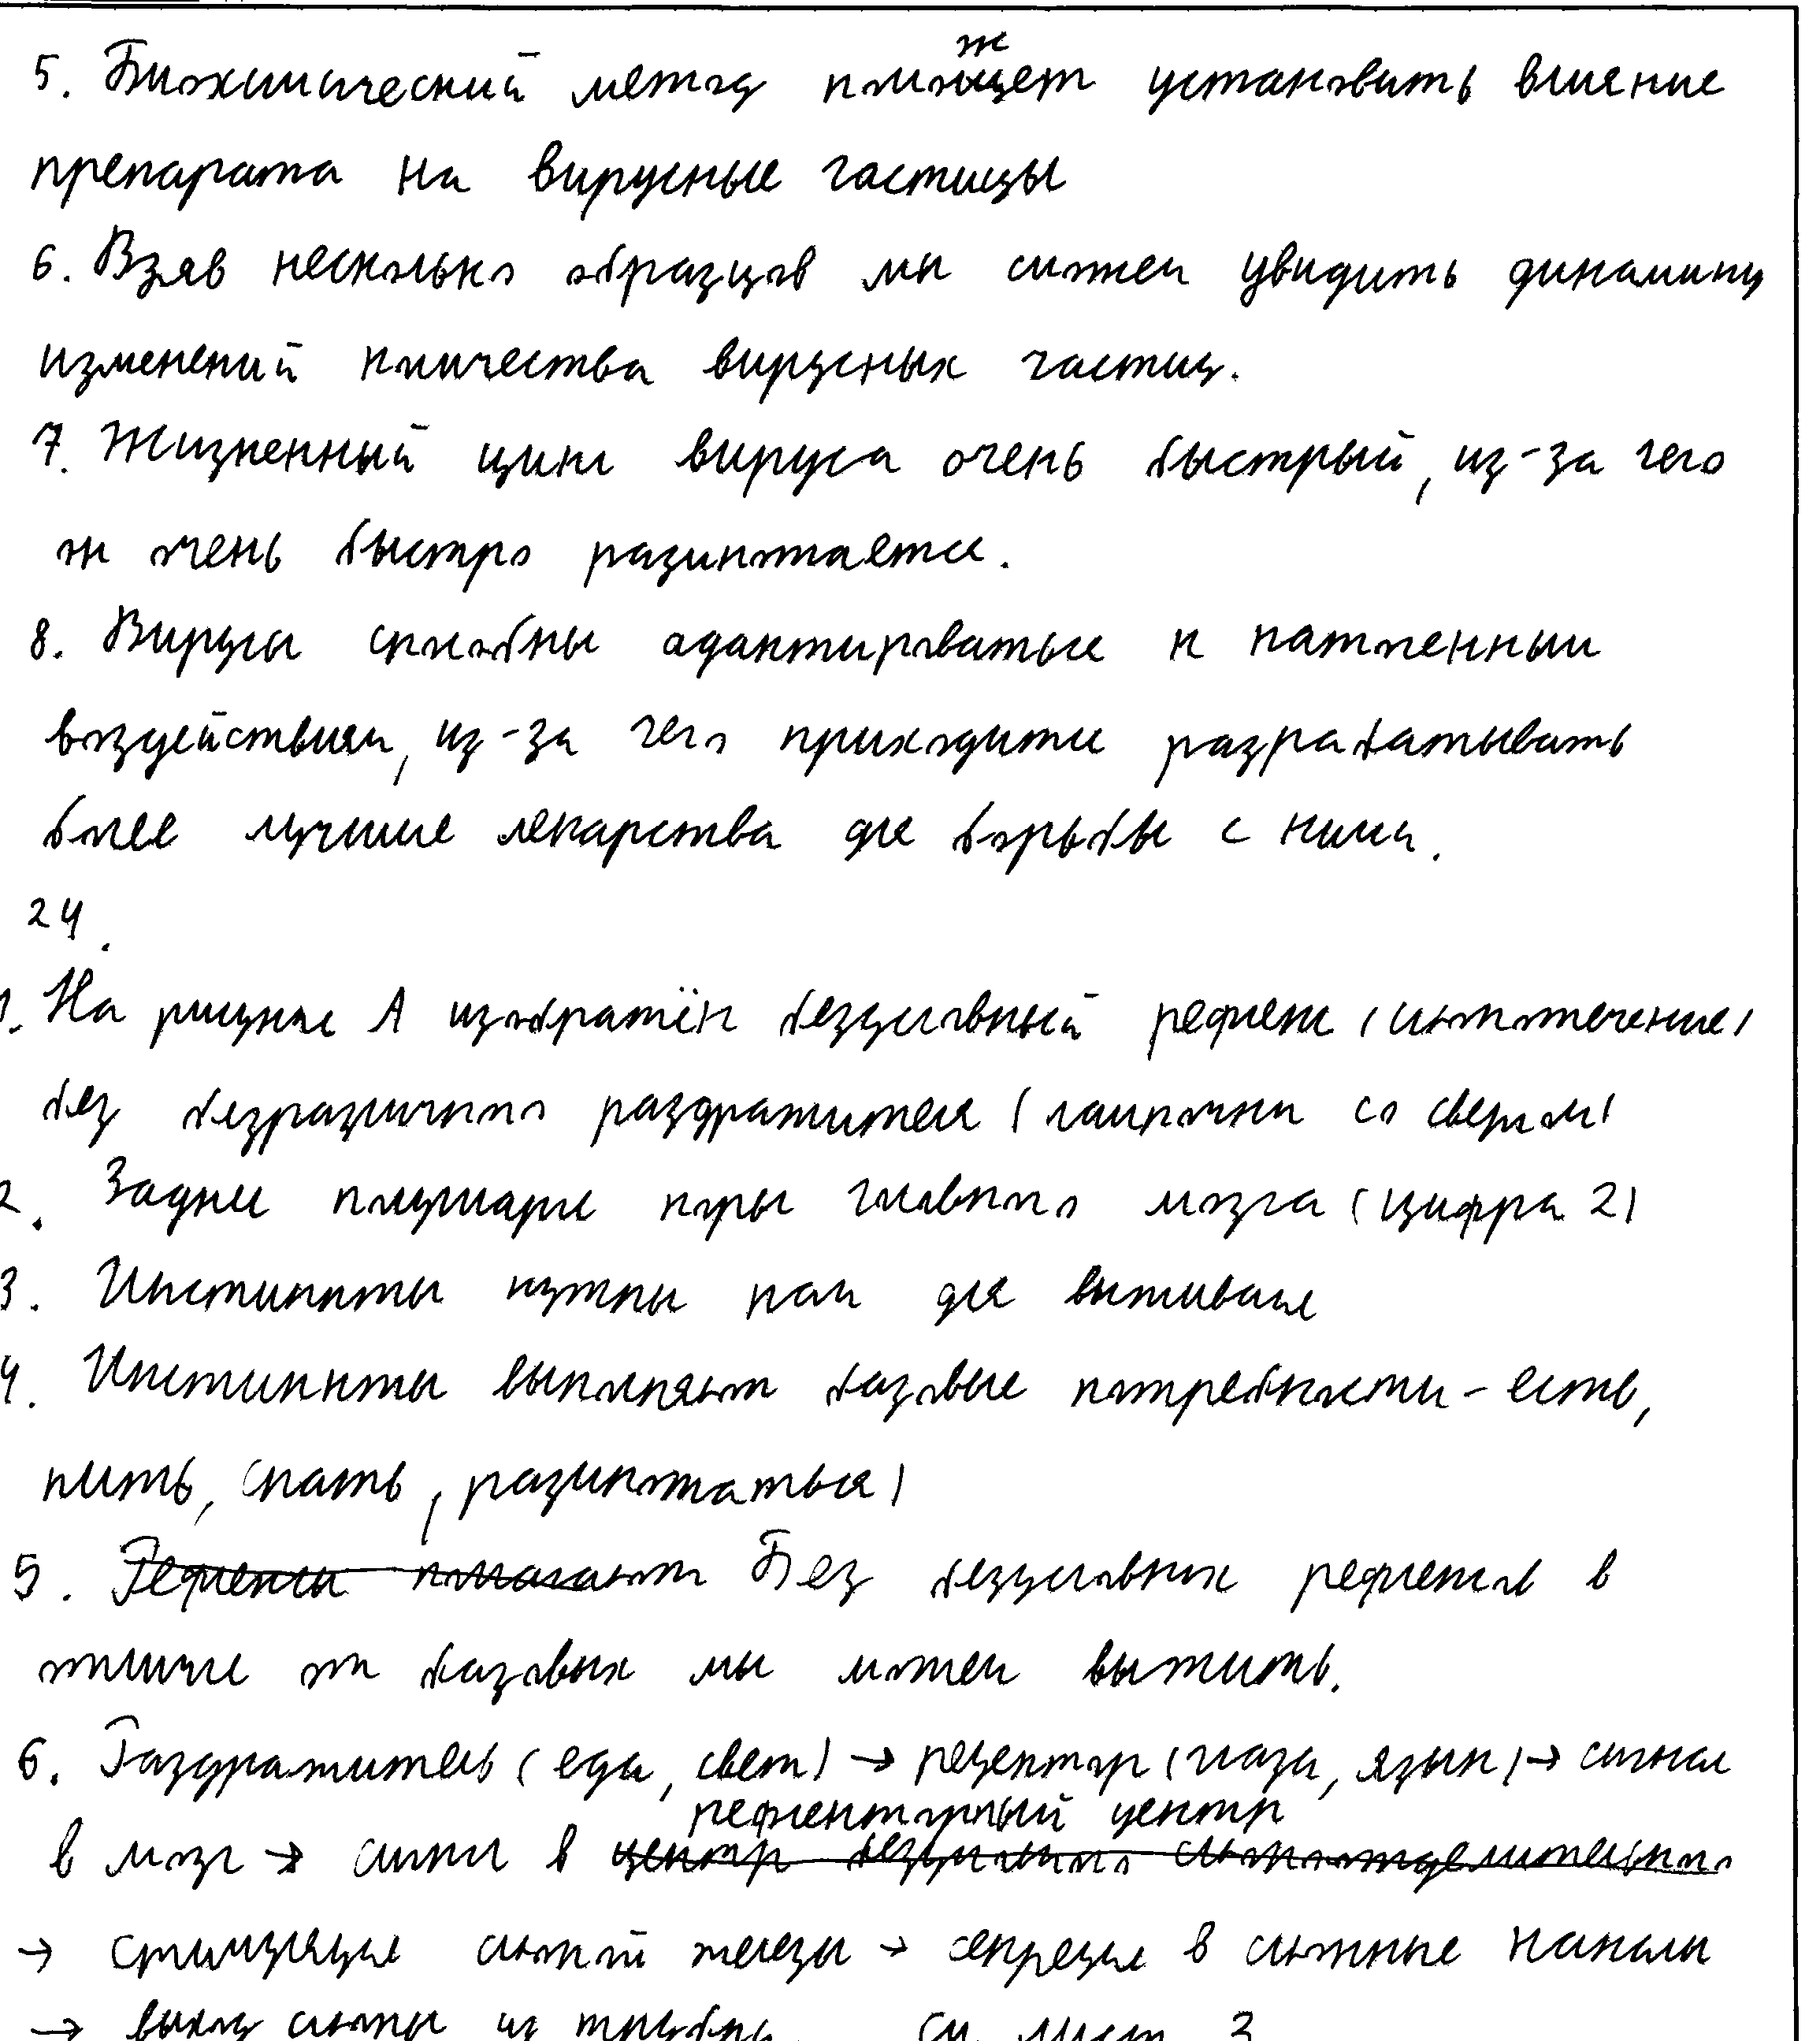 5. Биохимический метод поможет установить влияние
препарата на вирусные частицы
6. Взяв несколько образцов мы сможем увидить динамику
изменений количества вирусных частиц.
7. Жизненный цикл вируса очень быстрый, из-за чего
он очень быстро размножается.
8. Вирусы способны адаптироваться к постоенным
воздействиям, из-за чего приходится разрабатывать
более лучшие лекарства для борьбы с ними.
24.
1. На рисунке А изображён безусловный рефлекс (слюнотечение)
без безразличного раздражителя (лампочки со светом)
2. Задние полушарие коры головного мозга (цифра 2)
3. Инстинкты нужны нам для выживания
4. Инстинкты выполняют базовые потребности - есть,
пить, спать, размножаться)
5. Рефлексы помагают Без безусловных рефлексов в
отличие от базовых мы можем выжить.
6. Раздражитель (еда, свет) → рецептор (глаза, язык) → сигнал
рефлекторный центр
в мозг → сигнал в центр безусловного слюноотделительного
→ стимуляция слюной железы → секреция в слюнные каналы
→ выход слюны из См. лист 3